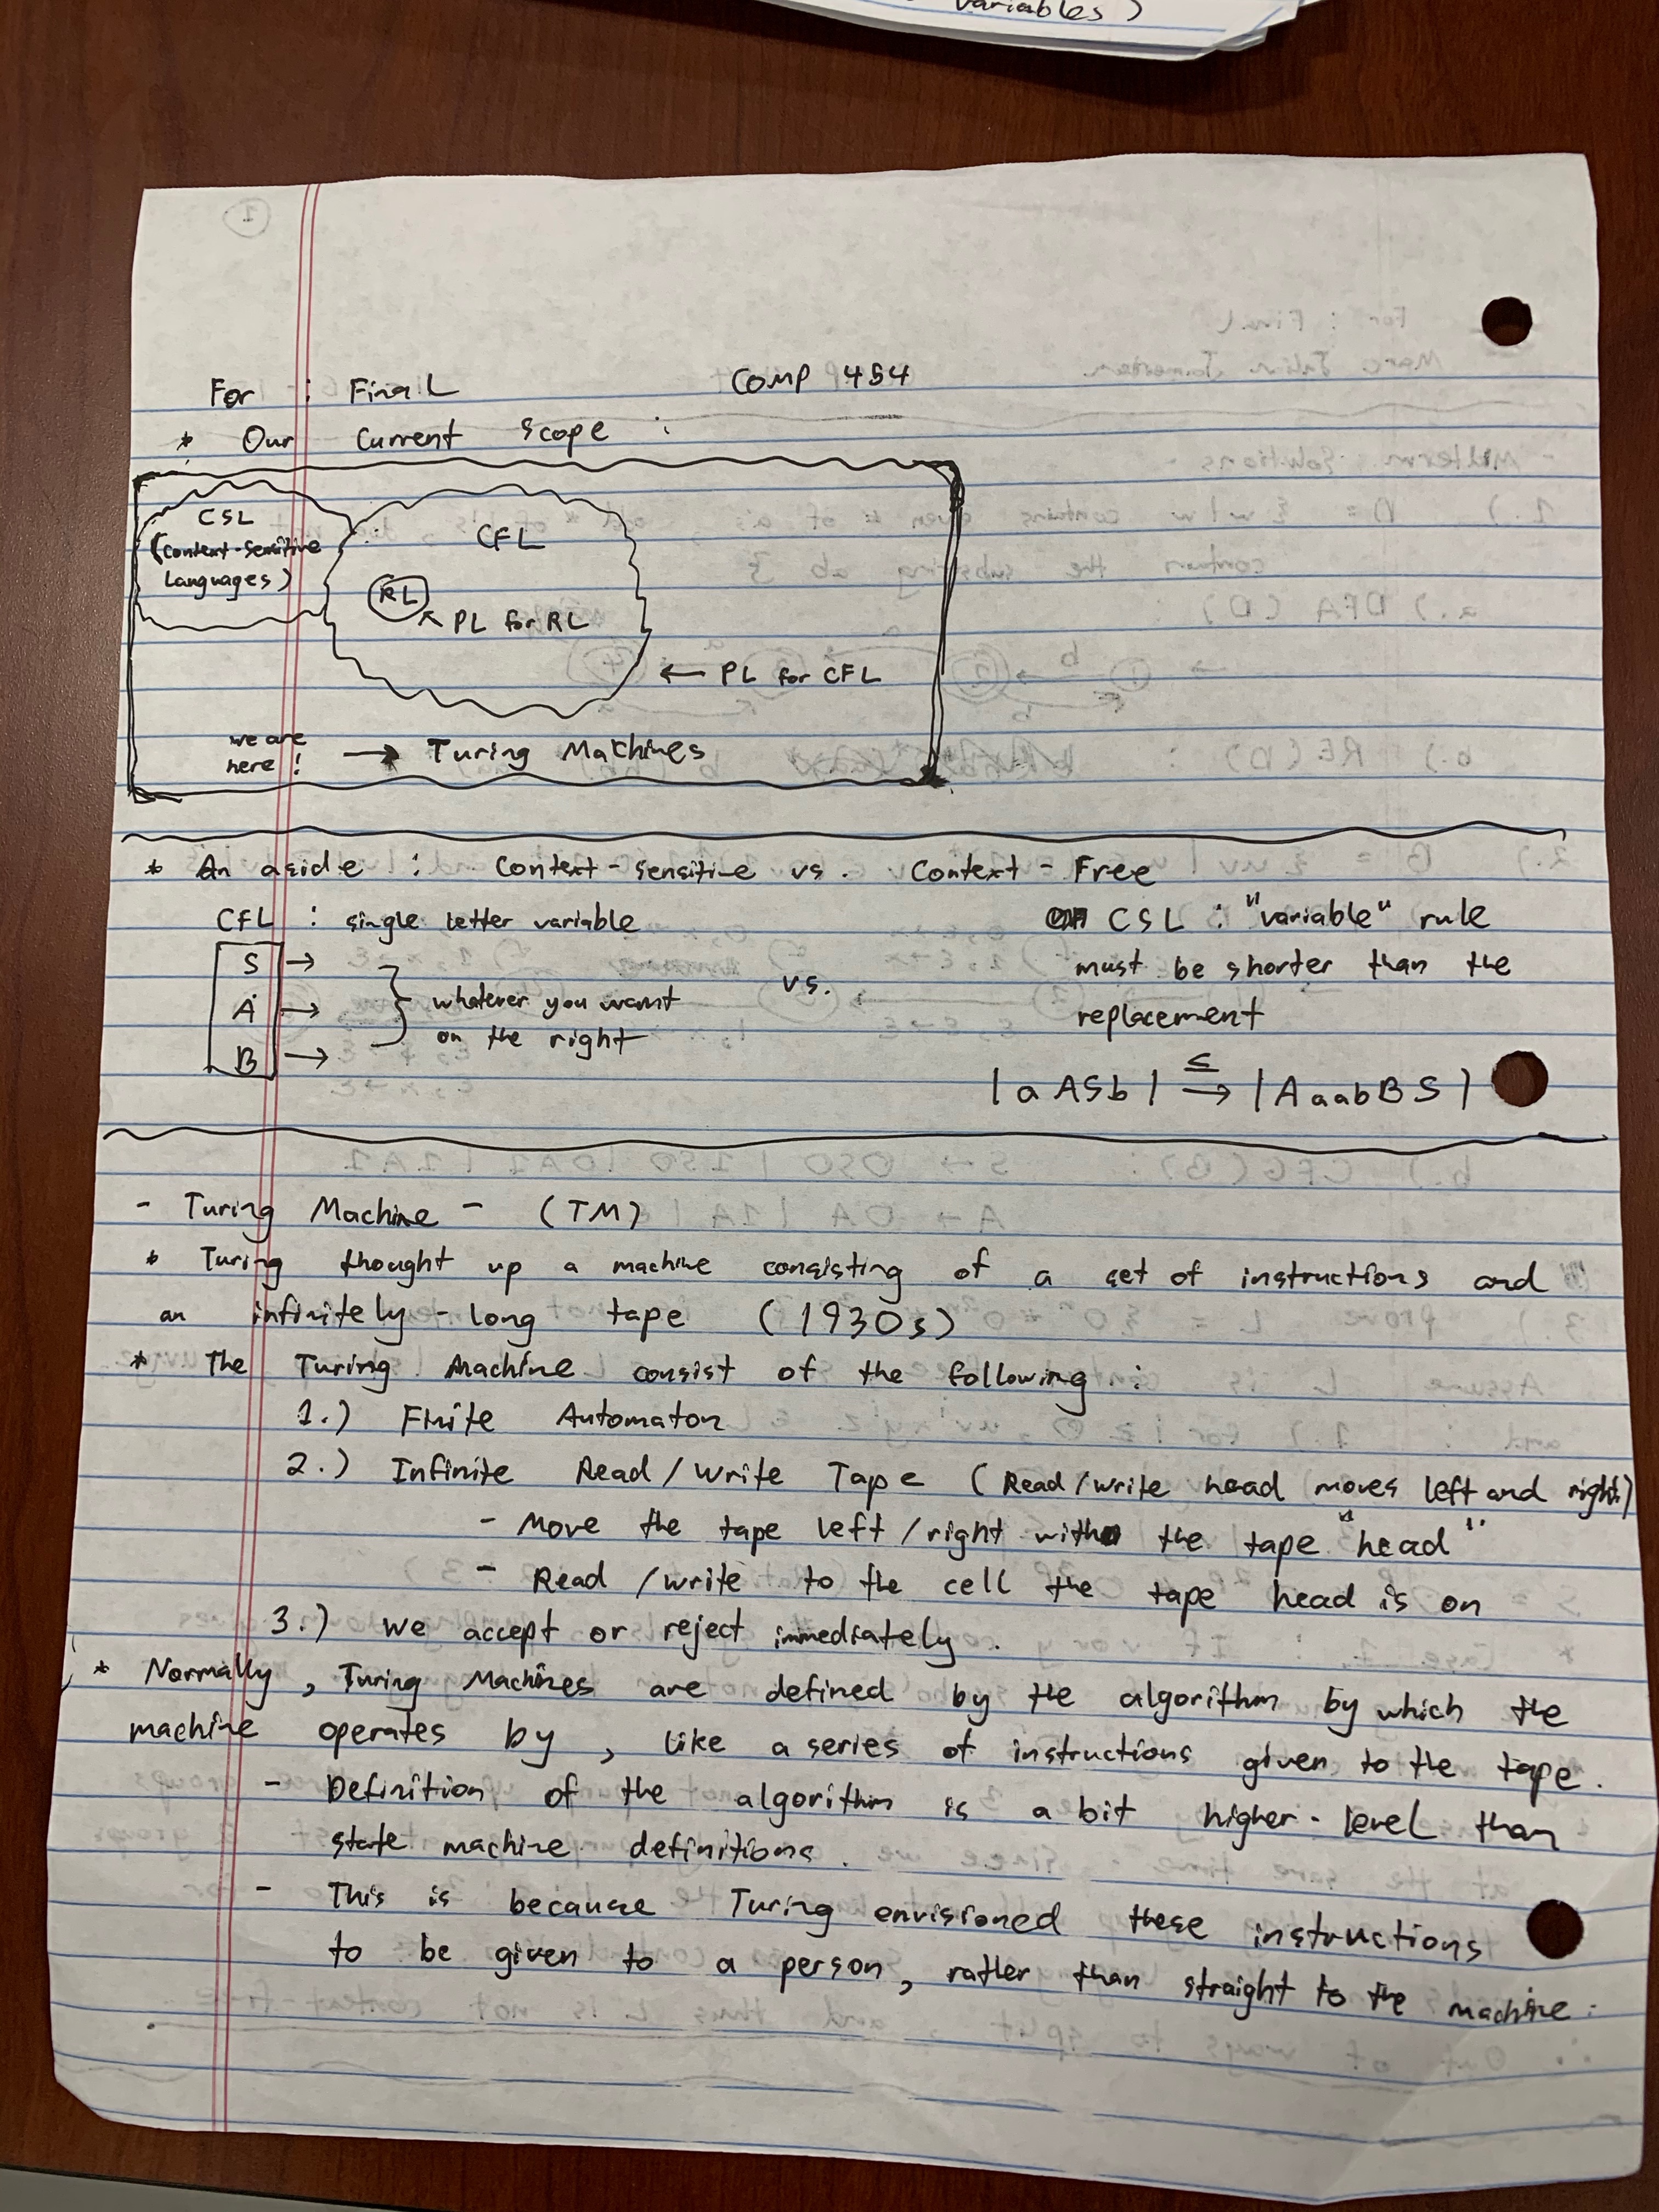 variables )
For : Final COMP 454
* Our current scope :
CSL
(Context-Sensitive
Languages)
CFL
RL
↖ PL for RL
← PL for CFL
we are
here ! → Turing Machines
* An aside : Context-Sensitive vs. Context-Free
CFL : single letter variable
S →
A →
B →
whatever you want
on the right
vs.
CSL : "variable" rule
must be shorter than the
replacement
≤
|aASb| → |AaabBS|
- Turing Machine - (TM)
* Turing thought up a machine consisting of a set of instructions and
an infinitely-long tape (1930s)
* The Turing Machine consist of the following :
1.) Finite Automaton
2.) Infinite Read/Write Tape (Read/write head moves left and right)
- Move the tape left/right with the tape "head"
- Read/write to the cell the tape head is on
3.) we accept or reject immediately.
* Normally, Turing Machines are defined by the algorithm by which the
machine operates by, like a series of instructions given to the tape.
- Definition of the algorithm is a bit higher-level than
state machine definitions.
- This is because Turing envisioned these instructions
to be given to a person, rather than straight to the machine.